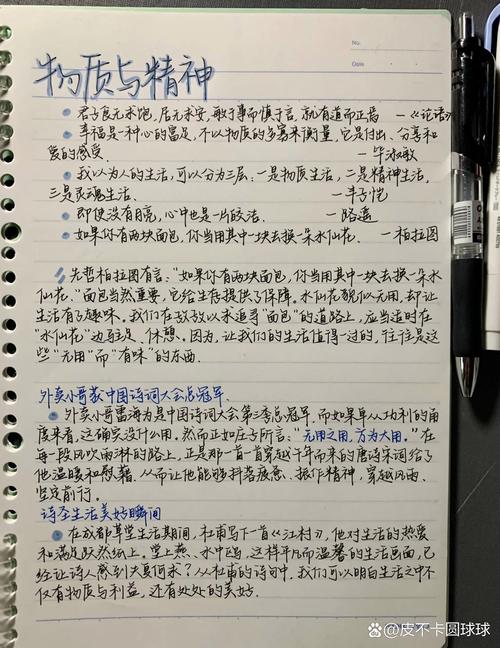 No.
Date
物质与精神
君子食无求饱,居无求安,敏于事而慎于言,就有道而正焉 —《论语》
幸福是一种心的富足,不以物质的多寡来衡量,它是付出、分享和
爱的感受. —毕淑敏
我以为人的生活,可以分为三层:一是物质生活,二是精神生活,
三是灵魂生活. —丰子恺
即使没有月亮,心中也是一片皎洁. —路遥
如果你有两块面包,你当用其中一块去换一朵水仙花. —柏拉图
先哲柏拉图有言:“如果你有两块面包,你当用其中一块去换一朵水
仙花.”面包当然重要,它给生存提供了保障.水仙花貌似无用,却让
生活有了趣味.我们在孜孜以求追寻“面包”的道路上,应当适时在
“水仙花”边驻足、休憩.因为,让我们的生活值得一过的,往往是这
些“无用”而“有味”的东西.
外卖小哥获中国诗词大会总冠军.
外卖小哥雷海为是中国诗词大会第三季总冠军.而如果单从功利的角
度来看,这确实没什么用.然而正如庄子所言:“无用之用,方为大用.”在
每一段风吹雨淋的路上,正是那一首一首穿越千年而来的唐诗宋词给了
他温暖和慰藉.从而让他能够抖落疲惫、振作精神,穿越风雨、
坚定前行.
诗圣生活美好瞬间
在成都草堂生活期间,杜甫写下一首《江村》,他对生活的热爱
和满足跃然纸上.堂上燕、水中鸥,这样平凡而温馨的生活画面,已
经让诗人感到夫复何求?从杜甫的诗句中,我们可以明白生活之中不
仅有物质与利益,还有处处的美好.
@皮不卡圆球球